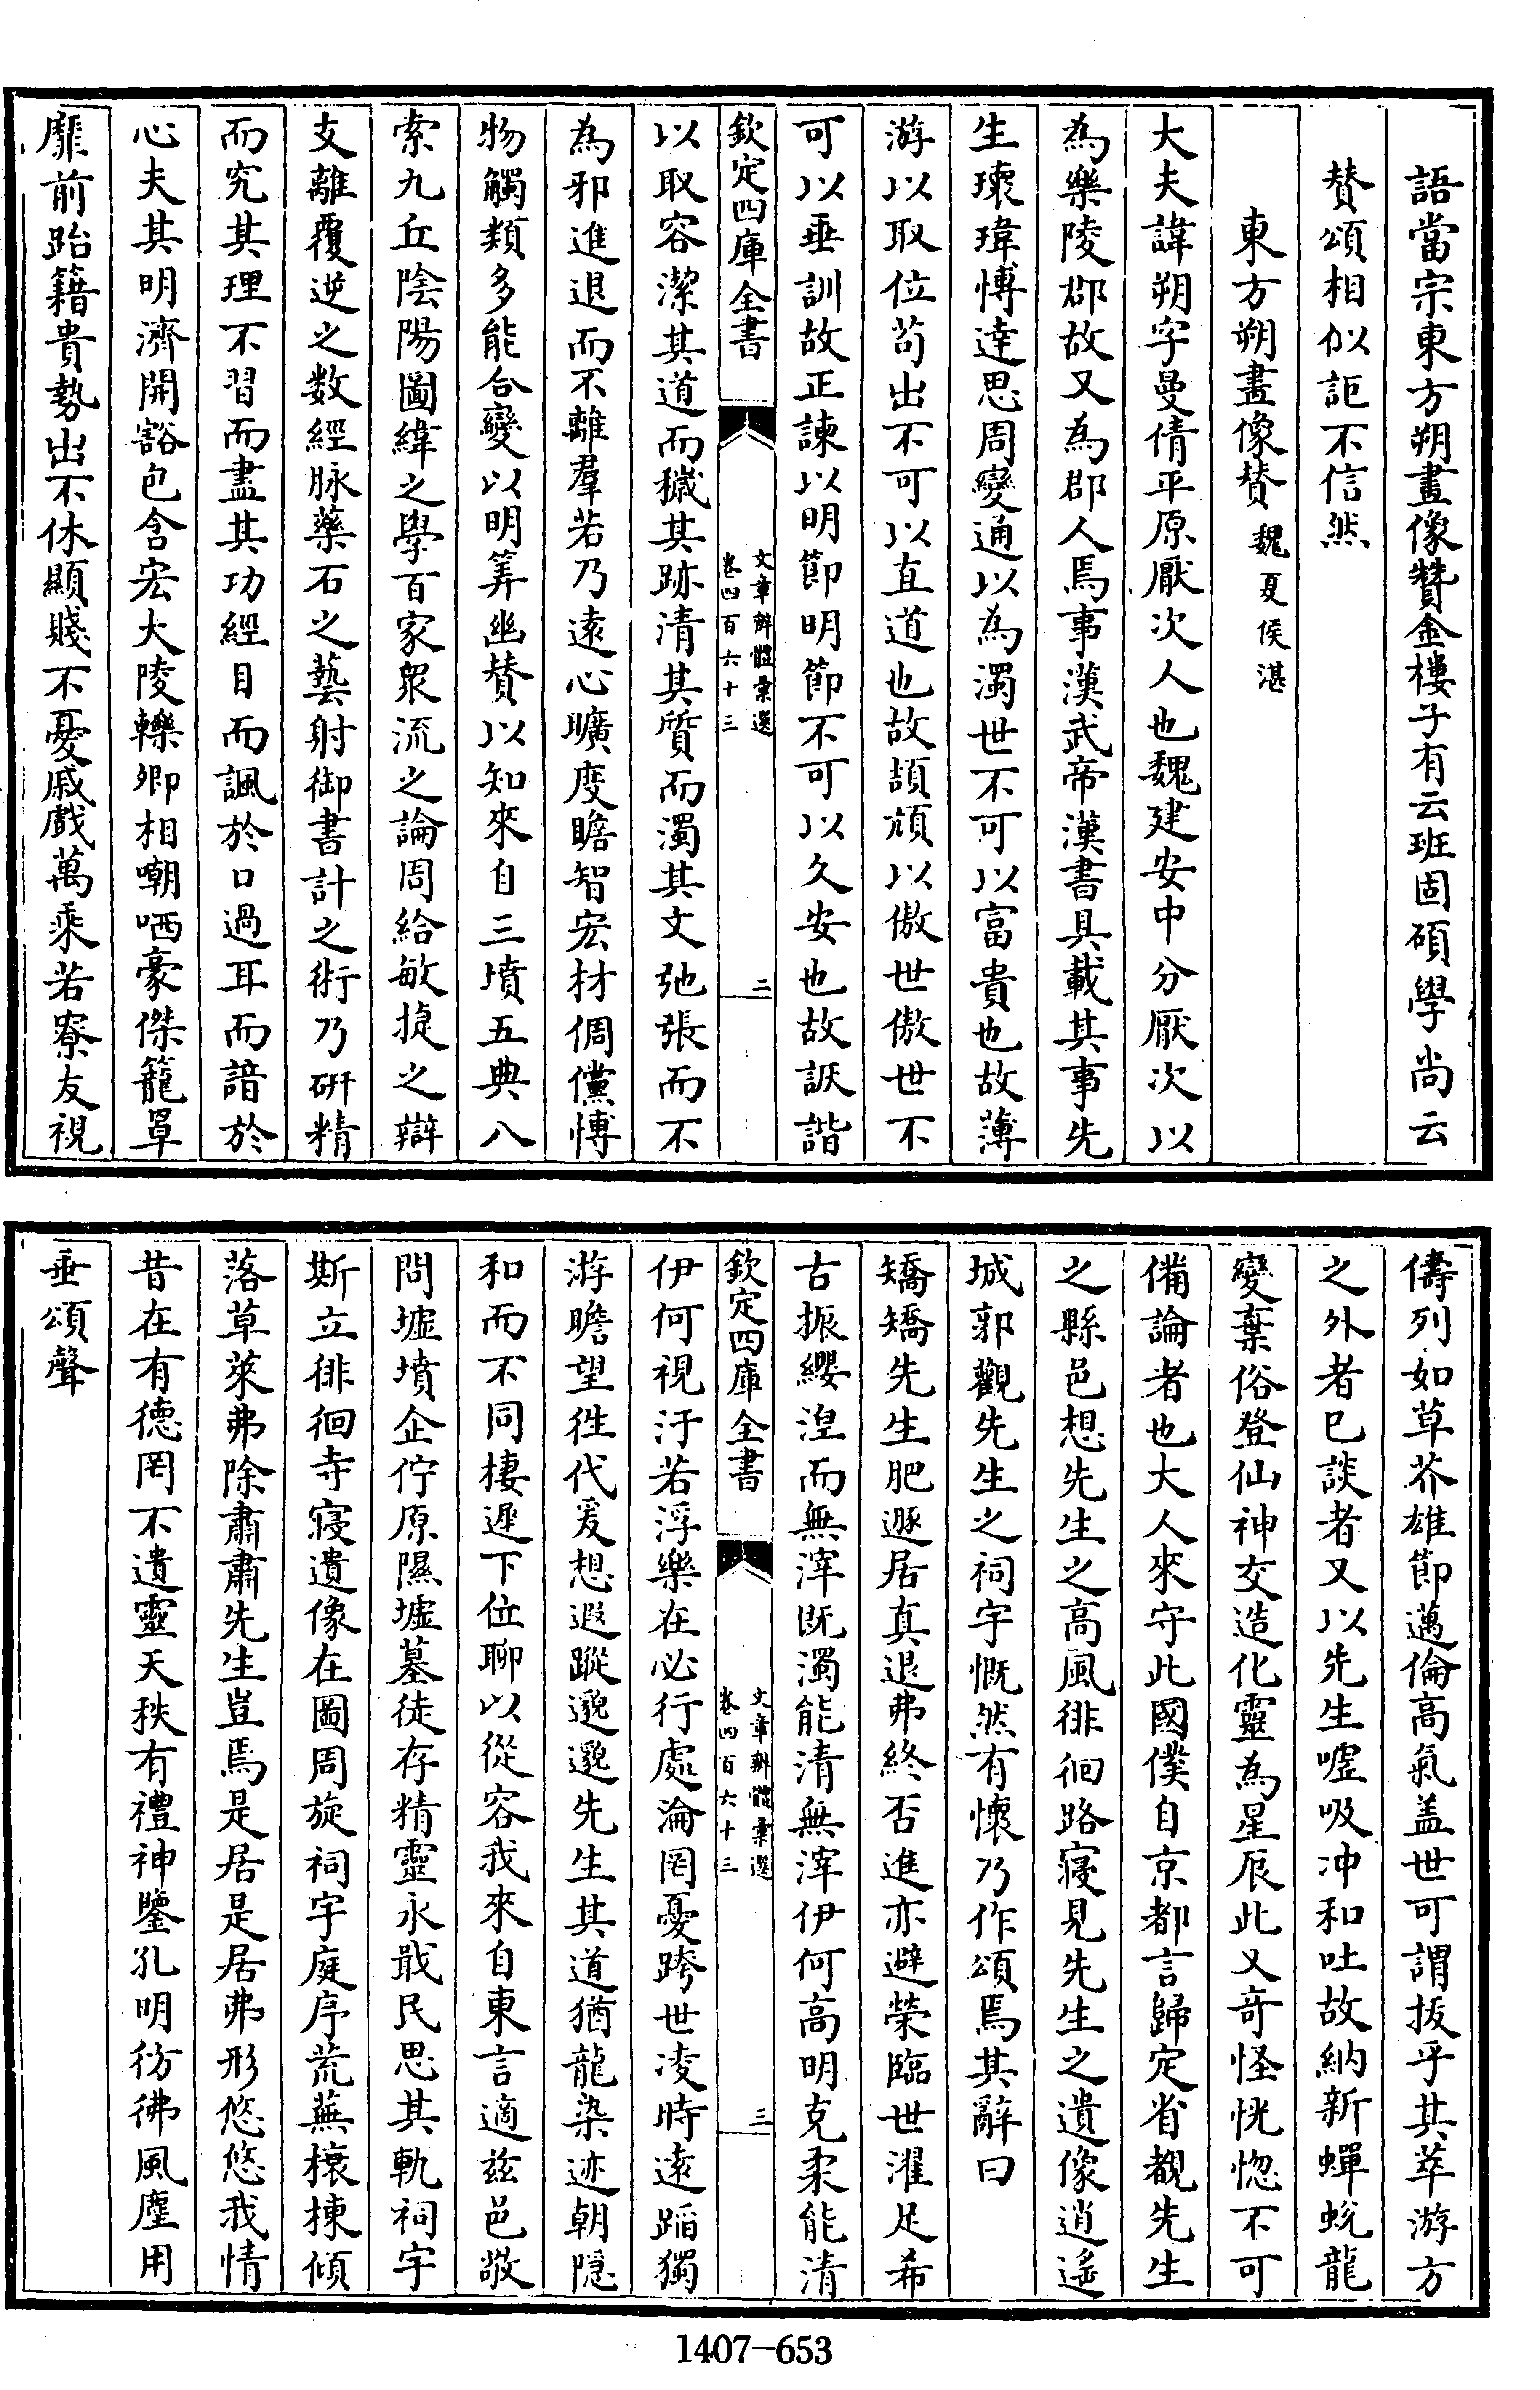 語當宗東方朔畫像贊金樓子有云班固碩學尚云
賛頌相似詎不信然
東方朔畫像賛魏夏侯湛
大夫諱朔字曼倩平原厭次人也魏建安中分厭次以
為樂陵郡故又為郡人焉事漢武帝漢書具載其事先
生瓌瑋博達思周變通以為濁世不可以富貴也故薄
游以取位苟出不可以直道也故頡頏以傲世傲世不
可以垂訓故正諫以明節明節不可以久安也故詼諧
欽定四庫全書
文章辨體彙選
卷四百六十三
二
以取容潔其道而穢其跡清其質而濁其文弛張而不
為邪進退而不離羣若乃遠心曠度瞻智宏材倜儻博
物觸類多能合變以明筭幽賛以知來自三墳五典八
索九丘陰陽圖緯之學百家衆流之論周給敏捷之辯
支離覆逆之数經脉藥石之藝射御書計之術乃研精
而究其理不習而盡其功經目而諷於口過耳而諳於
心夫其明濟開豁包含宏大陵轢卿相嘲哂豪傑籠罩
靡前跆籍貴勢出不休顯賤不憂戚戲萬乘若寮友視
儔列如草芥雄節邁倫高氣盖世可謂抜乎其萃游方
之外者已談者又以先生嘘吸冲和吐故納新蟬蛻龍
變棄俗登仙神交造化靈為星辰此又竒怪恍惚不可
備論者也大人來守此國僕自京都言歸定省覩先生
之縣邑想先生之高風徘徊路寢見先生之遺像逍遙
城郭觀先生之祠宇慨然有懷乃作頌焉其辭曰
矯矯先生肥遯居真退弗終否進亦避榮臨世濯足希
古振纓湼而無滓既濁能清無滓伊何高明克柔能清
欽定四庫全書
文章辨體彙選
卷四百六十三
三
伊何視汙若浮樂在必行處淪罔憂跨世凌時遠蹈獨
游瞻望徃代爰想遐蹤邈邈先生其道猶龍染迹朝隱
和而不同棲遲下位聊以從容我來自東言適兹邑敬
問墟墳企佇原隰墟墓徒存精靈永戢民思其軌祠宇
斯立徘徊寺寢遺像在圖周旋祠宇庭序荒蕪榱棟傾
落草萊弗除肅肅先生豈焉是居是居弗形悠悠我情
昔在有德罔不遺靈天秩有禮神鑒孔明彷彿風塵用
垂頌聲
1407-653